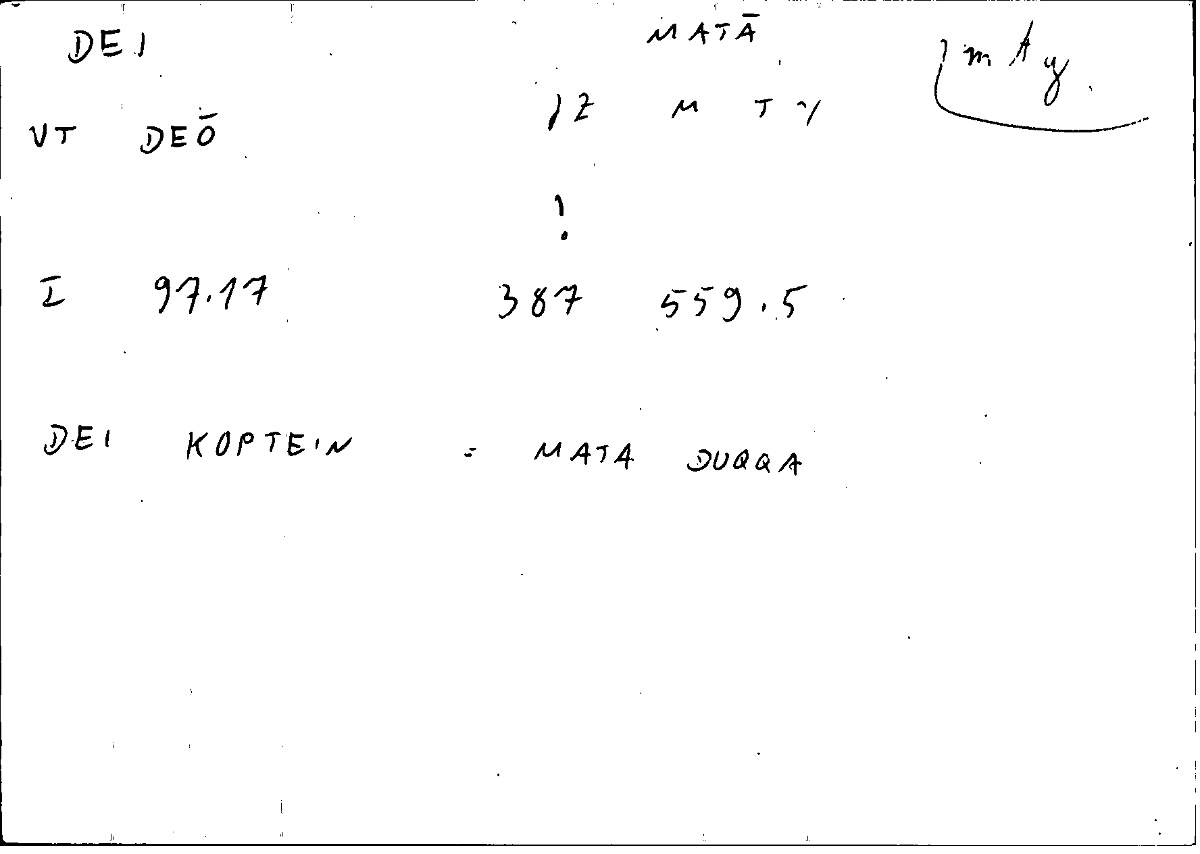 DEI MATĀ
mAy.
VT DEŌ IZ M T Y
!
I 97.17 387 559.5
DEI KOPTEIN = MATA DUQQA